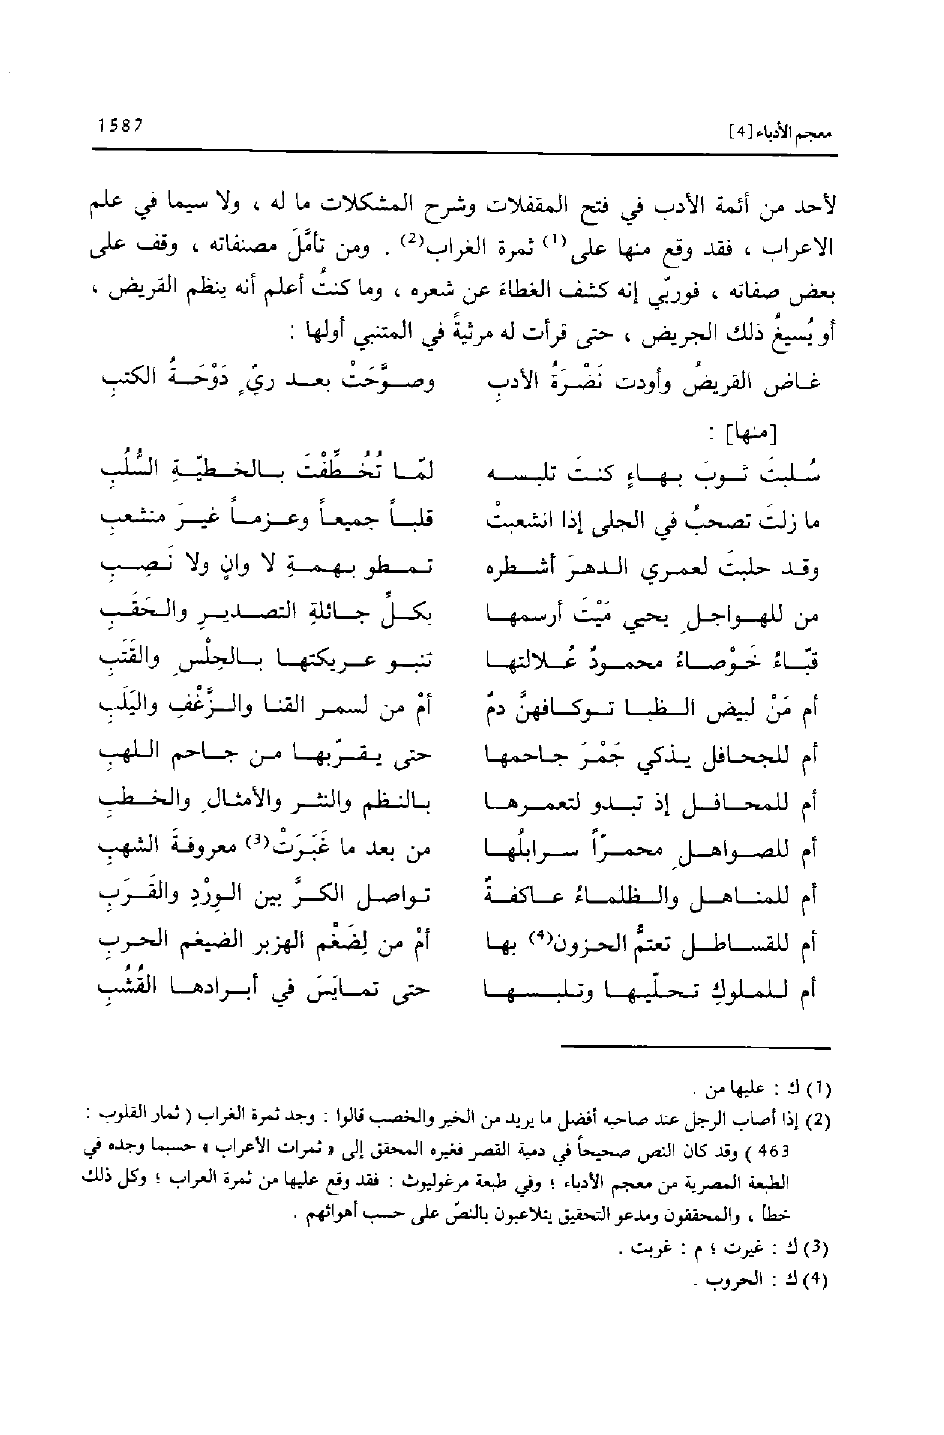 معجم الأدباء [4] 1587
لأحد من أئمة الأدب في فتح المقفلات وشرح المشكلات ما له ، ولا سيما في علم
الاعراب ، فقد وقع منها على(1) ثمرة الغراب(2) . ومن تأمَّل مصنفاته ، وقف على
بعض صفاته ، فوربّي إنه كشف الغطاء عن شعره ، وما كنتُ أعلم أنه ينظم القريض ،
أو يُسيغُ ذلك الجريض ، حتى قرأت له مرثيةً في المتنبي أولها :
غاض القريضُ وأودت نَضْرَةُ الأدبِ وصوَّحَتْ بعد ريٍّ دَوْحَةُ الكتبِ
[منها] :
سُلبتَ ثوبَ بهاءٍ كنتَ تلبسه لمّا تُخُطِّفْتَ بالخطيّةِ السُّلُبِ
ما زلتَ تصحبُ في الجلى إذا انشعبتْ قلباً جميعاً وعزماً غيرَ منشعبِ
وقد حلبتَ لعمري الدهرَ أشطره تمطو بهمةِ لا وانٍ ولا نَصِبِ
من للهواجلِ يحيي مَيْتَ أرسمها بكلِّ جائلةِ التصديرِ والحَقَبِ
قبّاءُ خَوْصاءُ محمودٌ عُلالتها تنبو عريكتها بالحِلْسِ والقَتَبِ
أم مَنْ لبيض الظبا توكافهنَّ دمٌ أمْ من لسمر القنا والزَّغْفِ واليَلَبِ
أم للجحافل يذكي جَمْرَ جاحمها حتى يقرّبها من جاحم اللهبِ
أم للمحافل إذ تبدو لتعمرها بالنظم والنثر والأمثالِ والخطبِ
أم للصواهلِ محمرّاً سرابلُها من بعد ما غَبَرَتْ(3) معروفةَ الشهبِ
أم للمناهلِ والظلماءُ عاكفةٌ تواصل الكرَّ بين الوِرْدِ والقَرَبِ
أم للقساطل تعتمُّ الحزون(4) بها أمْ من لِضَغْمِ الهزبر الضيغم الحربِ
أم للملوكِ تحلّيها وتلبسها حتى تمايَسَ في أبرادها القُشُبِ
(1) ك : عليها من .
(2) إذا أصاب الرجل عند صاحبه أفضل ما يريد من الخير والخصب قالوا : وجد ثمرة الغراب ( ثمار القلوب :
463 ) وقد كان النص صحيحاً في دمية القصر فغيره المحقق إلى « ثمرات الأعراب » حسبما وجده في
الطبعة المصرية من معجم الأدباء ؛ وفي طبعة مرغوليوث : فقد وقع عليها من ثمرة العراب ؛ وكل ذلك
خطأ ، والمحققون ومدعو التحقيق يتلاعبون بالنصّ على حسب أهوائهم .
(3) ك : غيرت ؛ م : غربت .
(4) ك : الحروب .